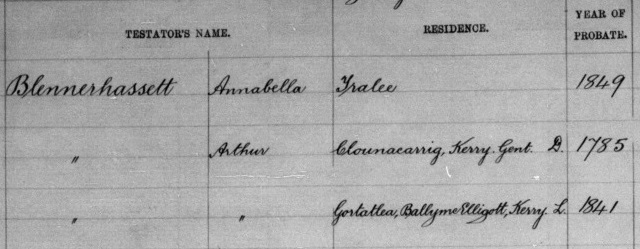 TESTATOR'S NAME. RESIDENCE. YEAR OF PROBATE.
Blennerhassett Annabella Tralee 1849
" Arthur Clounacarrig, Kerry. Gent. D. 1785
" " Gortatlea, BallymcElligott, Kerry. L. 1841